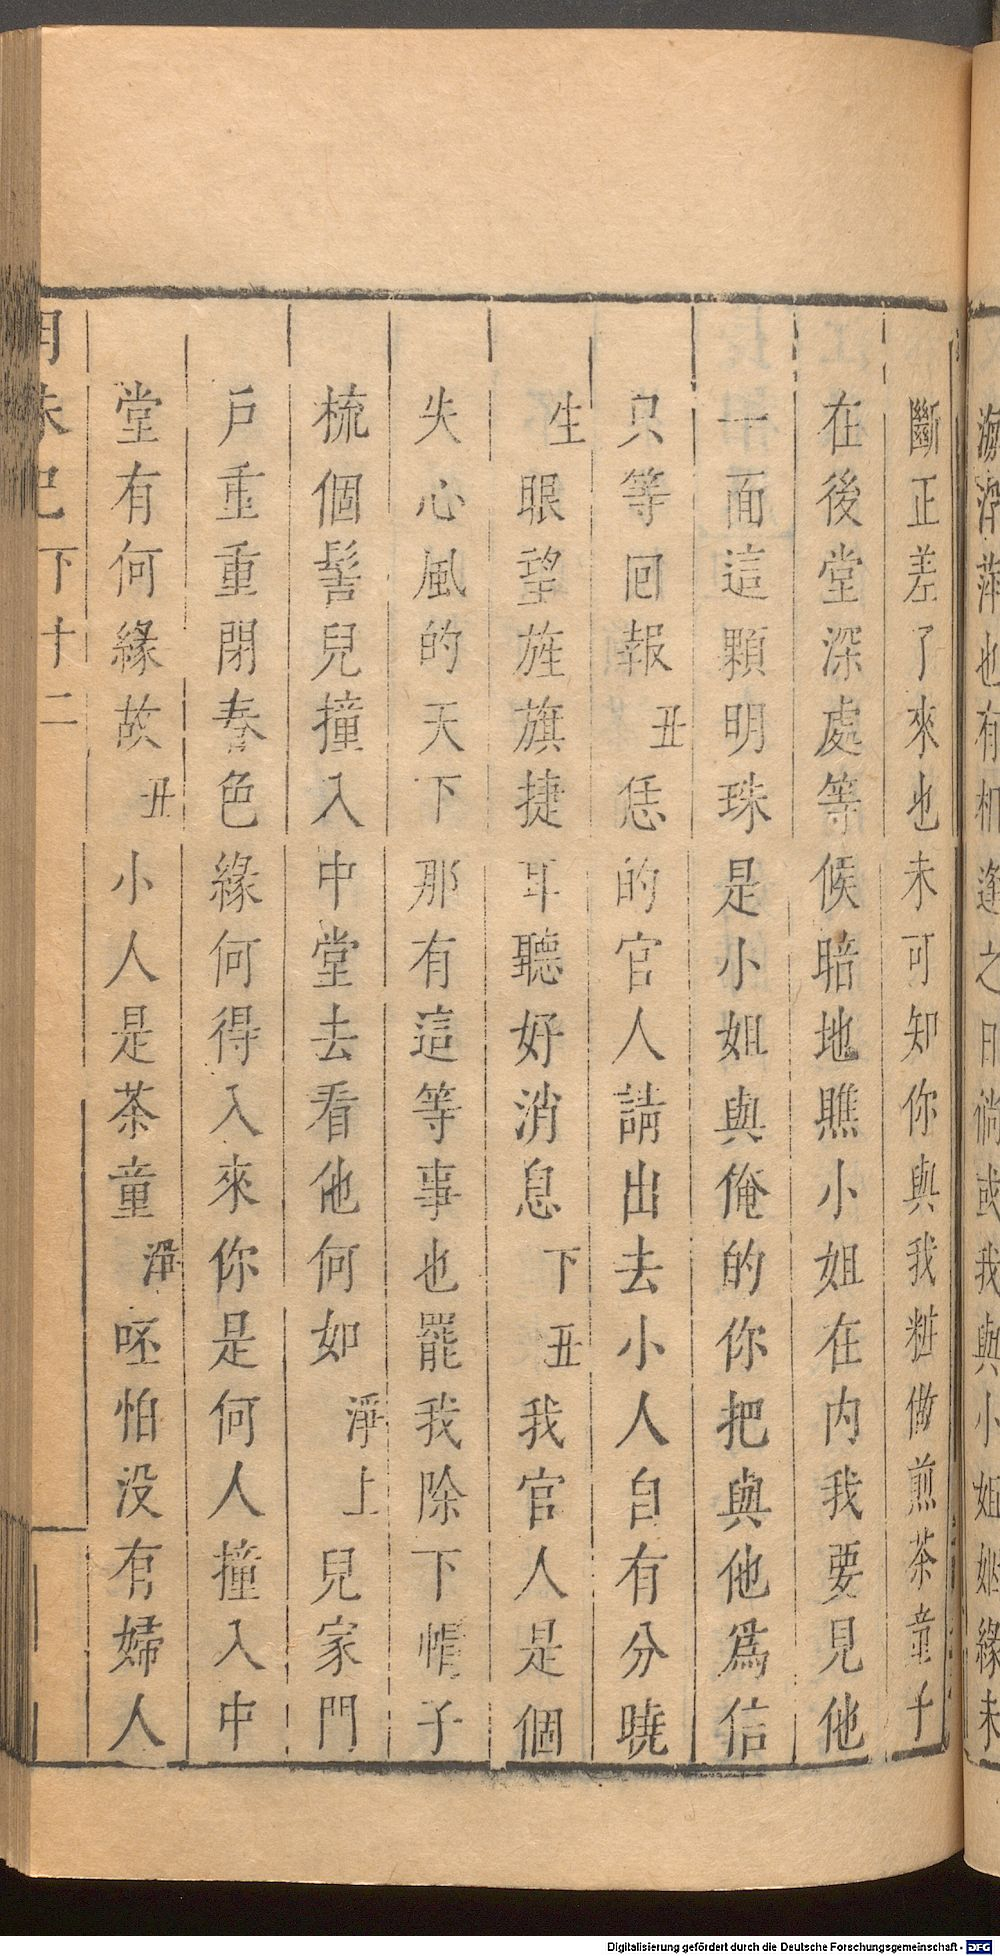 也有相逢之日倘或我與小姐姻緣未
斷正差了來也未可知你與我粧做煎茶童子
在後堂深處等候暗地瞧小姐在内我要見他
一面這顆明珠是小姐與俺的你把與他爲信
只等囘報丑恁的官人請出去小人自有分曉
生眼望旌旗捷耳聽好消息下丑我官人是個
失心風的天下那有這等事也罷我除下帽子
梳個髻兒撞入中堂去看他何如淨上兒家門
戶重重閉春色緣何得入來你是何人撞入中
堂有何緣故丑小人是茶童淨呸怕没有婦人
明珠記下十二
Digitalisierung gefördert durch die Deutsche Forschungsgemeinschaft - DFG